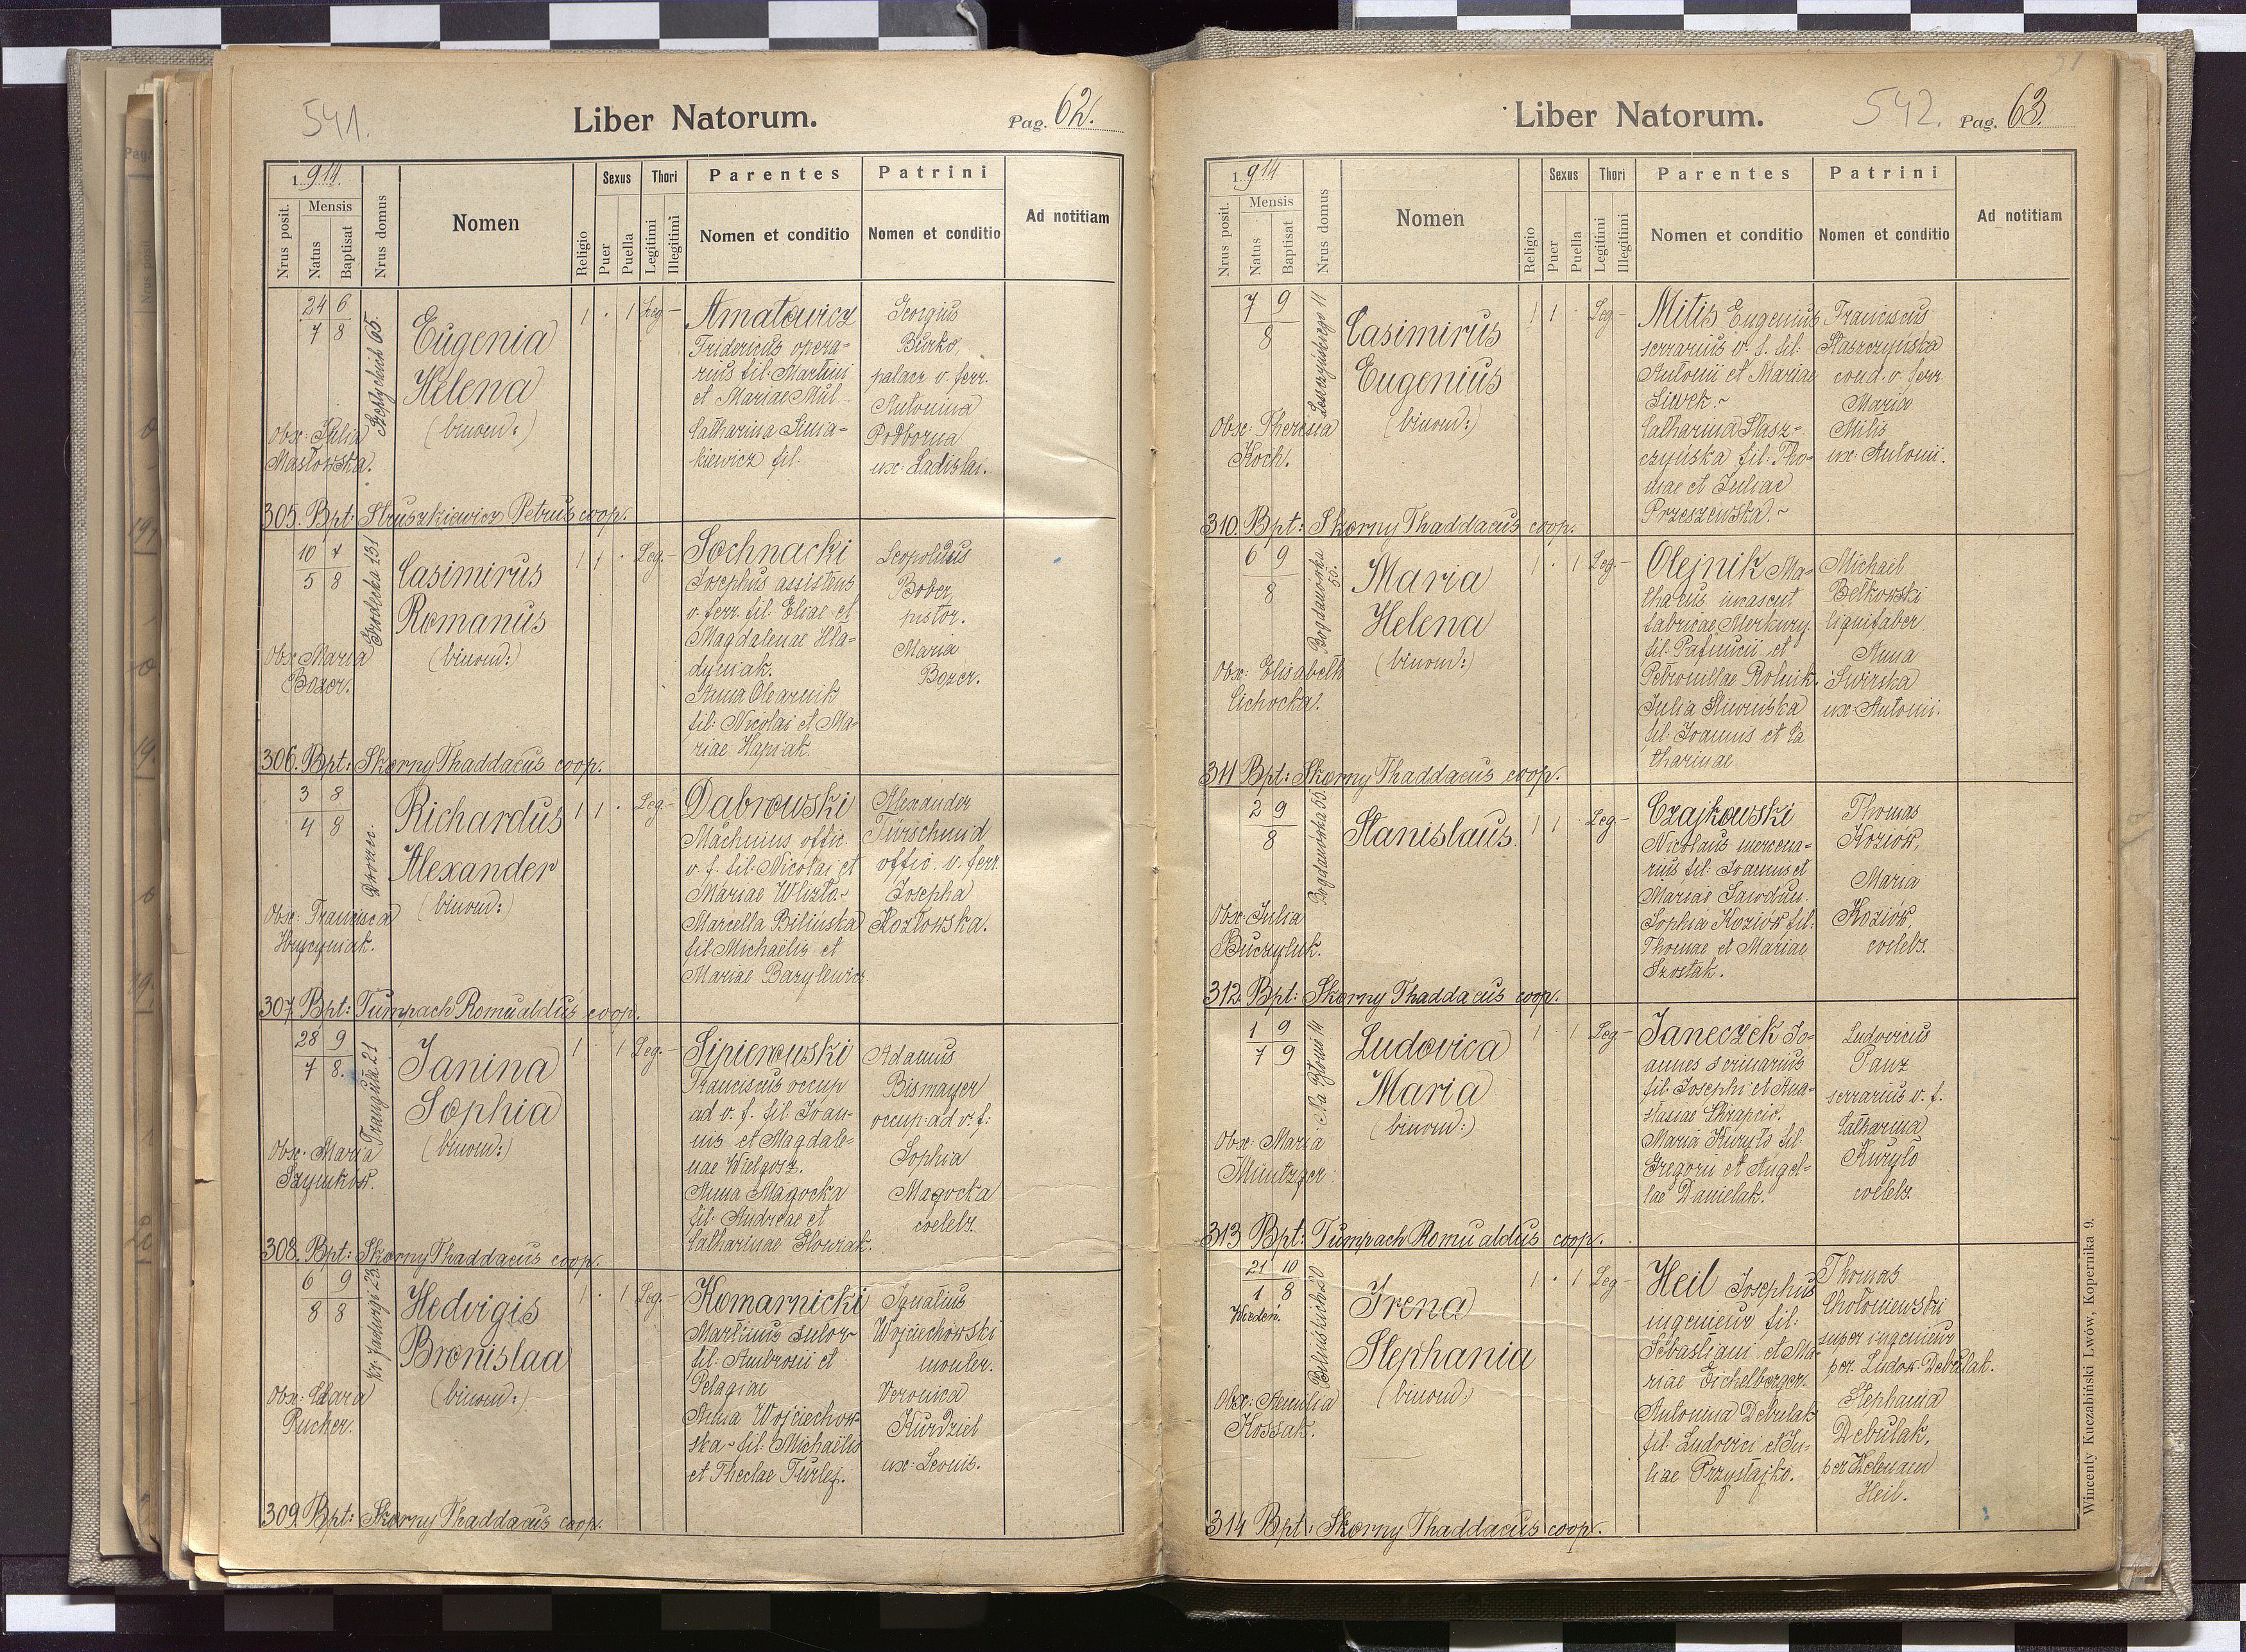 541.
Liber Natorum.
Pag. 62.
1914.
Nrus posit.
Mensis
Natus
Baptisat
Nrus domus
Nomen
Religio
Sexus
Puer
Puella
Thori
Legitimi
Illegitimi
Parentes
Nomen et conditio
Patrini
Nomen et conditio
Ad notitiam
24 6
7 8
65.
Eugenia
Helena
(binom:)
1 · 1 Leg –
Obx: Julia
Masłowska.
Amatowicz
Fridericus opera-
rius fil: Martini
et Mariae Mul
Catharina
kiewicz fil:
Georgius
Burko,
palacz v. ferr.
Antonina
Podborna
ux: Ladislai.
305. Bpt: Struszkiewicz Petrus coop.
10 7
5 8
Grodecka 131
Casimirus
Romanus
(binom:)
1 1 · Leg. –
Obx: Maria
Bozer.
Sochnacki
Josephus assistens
v. ferr. fil. Eliae et
Magdalenae Hla-
dyniak.
Anna Olearnik
fil: Nicolai et Ma-
riae Hapiak.
Leopoldus
Bober,
pistor.
Maria
Bozer.
306. Bpt: Skorny Thaddaeus coop.
3 8
4 8
Dworzec.
Richardus
Alexander
(binom:)
1 1 · Leg. –
Obx: Francisca
Hrycyniak.
Dąbrowski
offic.
v. f. fil. Nicolai et
Mariae
Marcella Bilińska
fil. Michaelis et
Mariae Bazylewicz
Alexander
Türschmid
offic. v. ferr.
Josepha
Kozłowska.
307. Bpt: Tumpach Romualdus coop.
28 9
7 8.
Franciszk. 21
Janina
Sophia
(binom:)
1 · 1 Leg. –
Obx: Maria
Szymków.
Sipierowski
Franciscus occup
ad v. f. fil. Joan-
nis et Magdale-
nae Wielgosz.
Anna Magocka
fil: Andreae et
Catharinae Glowzak.
Adamus
Bismayer
occup: ad v. f:
Sophia
Magocka
coelebs.
308. Bpt: Skorny Thaddaeus coop.
6 9
8 8
Kr. Jadwigi 23
Hedvigis
Bronislaa
(binom:)
1 · 1 Leg. –
Obx: Clara
Pucher.
Komarnicki
Martinus sutor
fil. Ambrosii et
Pelagiae
Anna Wojciechow-
ska fil: Michaelis
et Theclae Turlej.
Ignatius
Wojciechowski
monter.
Veronica
Kurdziel
ux: Leonis.
309. Bpt: Skorny Thaddaeus coop.
Liber Natorum.
542.
Pag. 63.
1914
Nrus posit.
Mensis
Natus
Baptisat
Nrus domus
Nomen
Religio
Sexus
Puer
Puella
Thori
Legitimi
Illegitimi
Parentes
Nomen et conditio
Patrini
Nomen et conditio
Ad notitiam
7 9
8
Leszczyńskiego 11
Casimirus
Eugenius
(binom:)
1 1 Leg –
Obx: Theresia
Koch.
Mitis Eugenius
serrarius v. f. fil:
Antonii et Mariae
Siwek.
Catharina Stasz-
czyńska fil: Tho-
mae et Juliae
Przeszewska.
Franciscus
Staszczyńska
cond. v. ferr.
Maria
Mitis
ux: Antonii.
310. Bpt: Skorny Thaddaeus coop.
6 9
8
Bogdanówka 55.
Maria
Helena
(binom:)
1 · 1 Leg. –
Obx: Elisabeth
Cichocka.
Olejnik Ma-
thaeus
fabricae Merkury.
fil: Pafnucii et
Petronillae Rolnik.
Julia Śliwińska
fil: Joannis et Ca
tharinae
Michael
Bełkowski
lignifaber.
Anna
Świrska
ux: Antonii.
311 Bpt: Skorny Thaddaeus coop.
2 9
8
Bogdanówka 55.
Stanislaus.
1 1 · Leg –
Obx: Julia
Buczyluk.
Czajkowski
Nicolaus mercena-
rius fil: Joannis et
Mariae
Sophia Koziók fil:
Thomae et Mariae
Szostak.
Thomas
Koziók,
Maria
Koziók,
coelebs.
312. Bpt: Skorny Thaddaeus coop.
1 9
7 9
Na Błonie 14.
Ludovica
Maria
(binom:)
1 · 1 Leg –
Obx: Maria
Müntzger.
Janeczek Jo-
annes scriniarius
fil. Josephi et Ana-
stasiae
Maria Kuryło fil:
Gregorii et Angel-
lae Danielak.
Ludovicus
Panz
serrarius v. f.
Catharina
Kuryło
coelebs.
313 Bpt: Tumpach Romualdus coop.
21 10
1 8
Wiedeń.
Bilińskich 20
Irena
Stephania
(binom:)
1 · 1 Leg –
Obx: Aemilia
Kossak.
Heil Josephus
ingenieur fil:
Sebastiani et Ma-
riae Eichelberger.
Antonina Debulak
fil. Ludovici et Ju-
liae Przystajko.
Thomas
Chołoniewski
super ingenieur
per Ludov. Debulak.
Stephania
Debulak,
per Helenam
Heil.
314 Bpt: Skorny Thaddaeus coop.
Wincenty Kuczabiński Lwów, Kopernika 9.